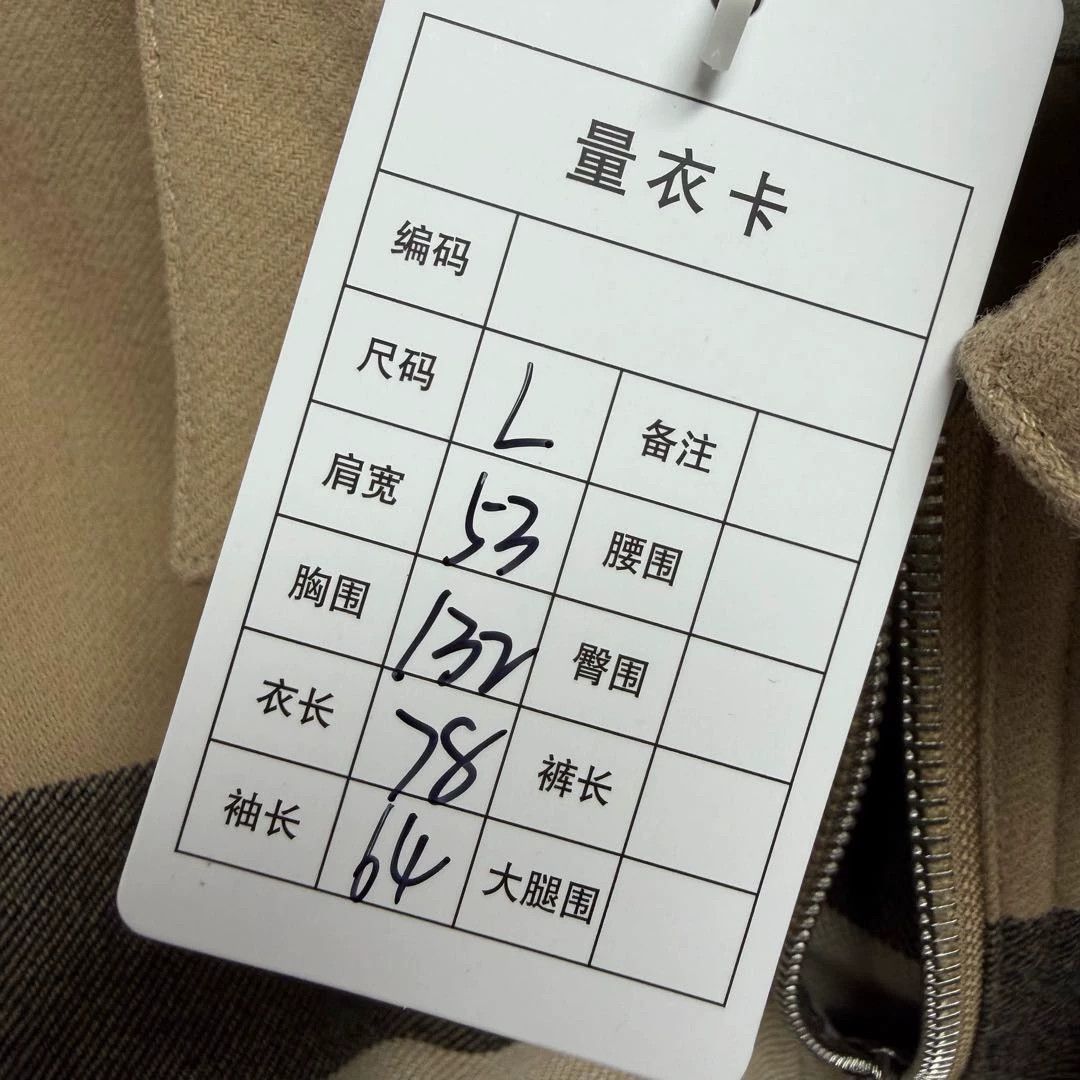 量衣卡
编码
尺码 L 备注
肩宽 53 腰围
胸围 132 臀围
衣长 78 裤长
袖长 64 大腿围